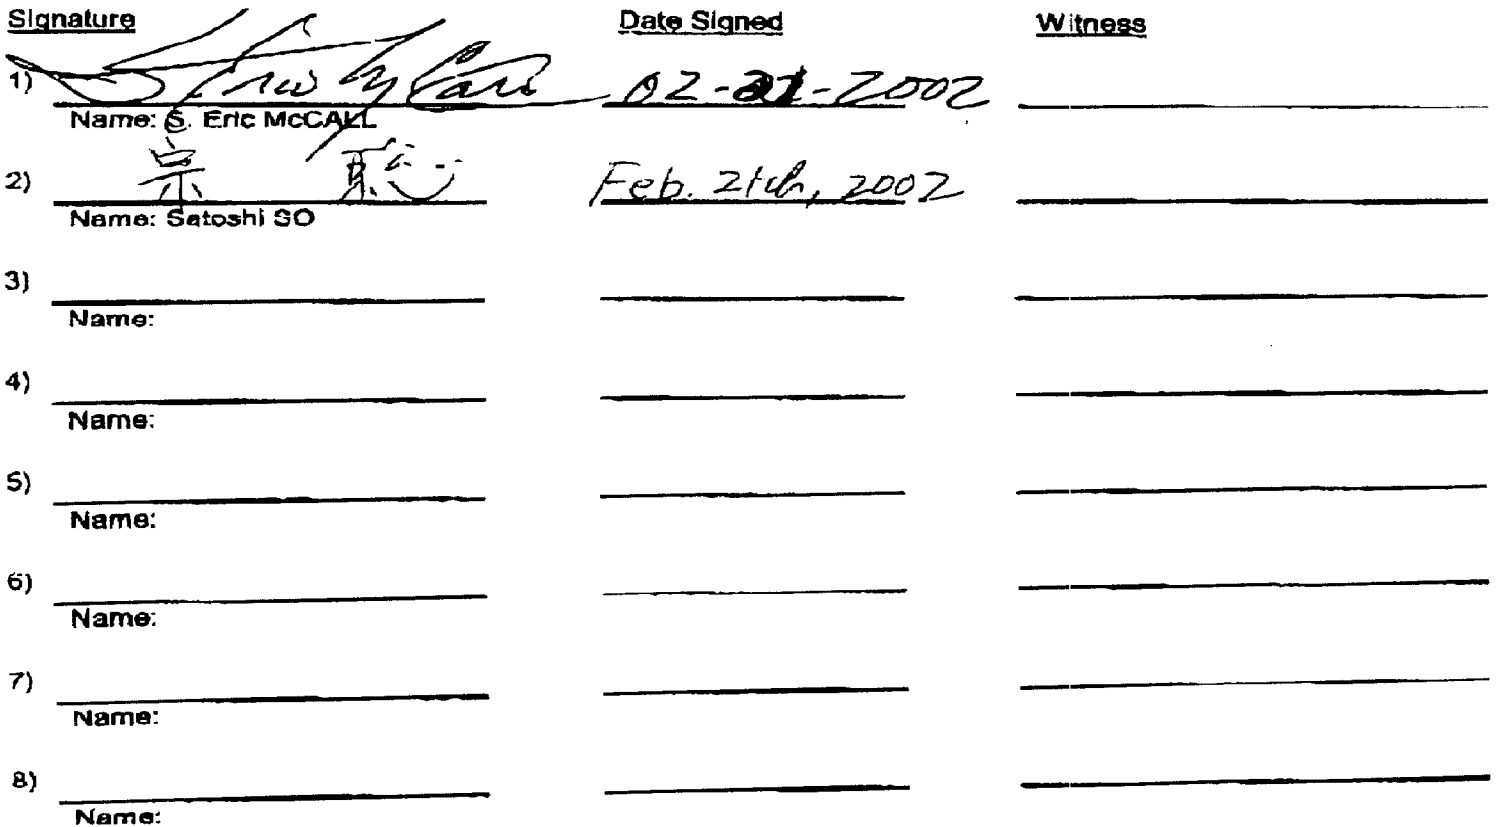 Signature Date Signed Witness
1) S. Eric McCall 02-21-2002
Name: S. Eric McCALL
2) 宗 聡 Feb. 21th, 2002
Name: Satoshi SO
3)
Name:
4)
Name:
5)
Name:
6)
Name:
7)
Name:
8)
Name: